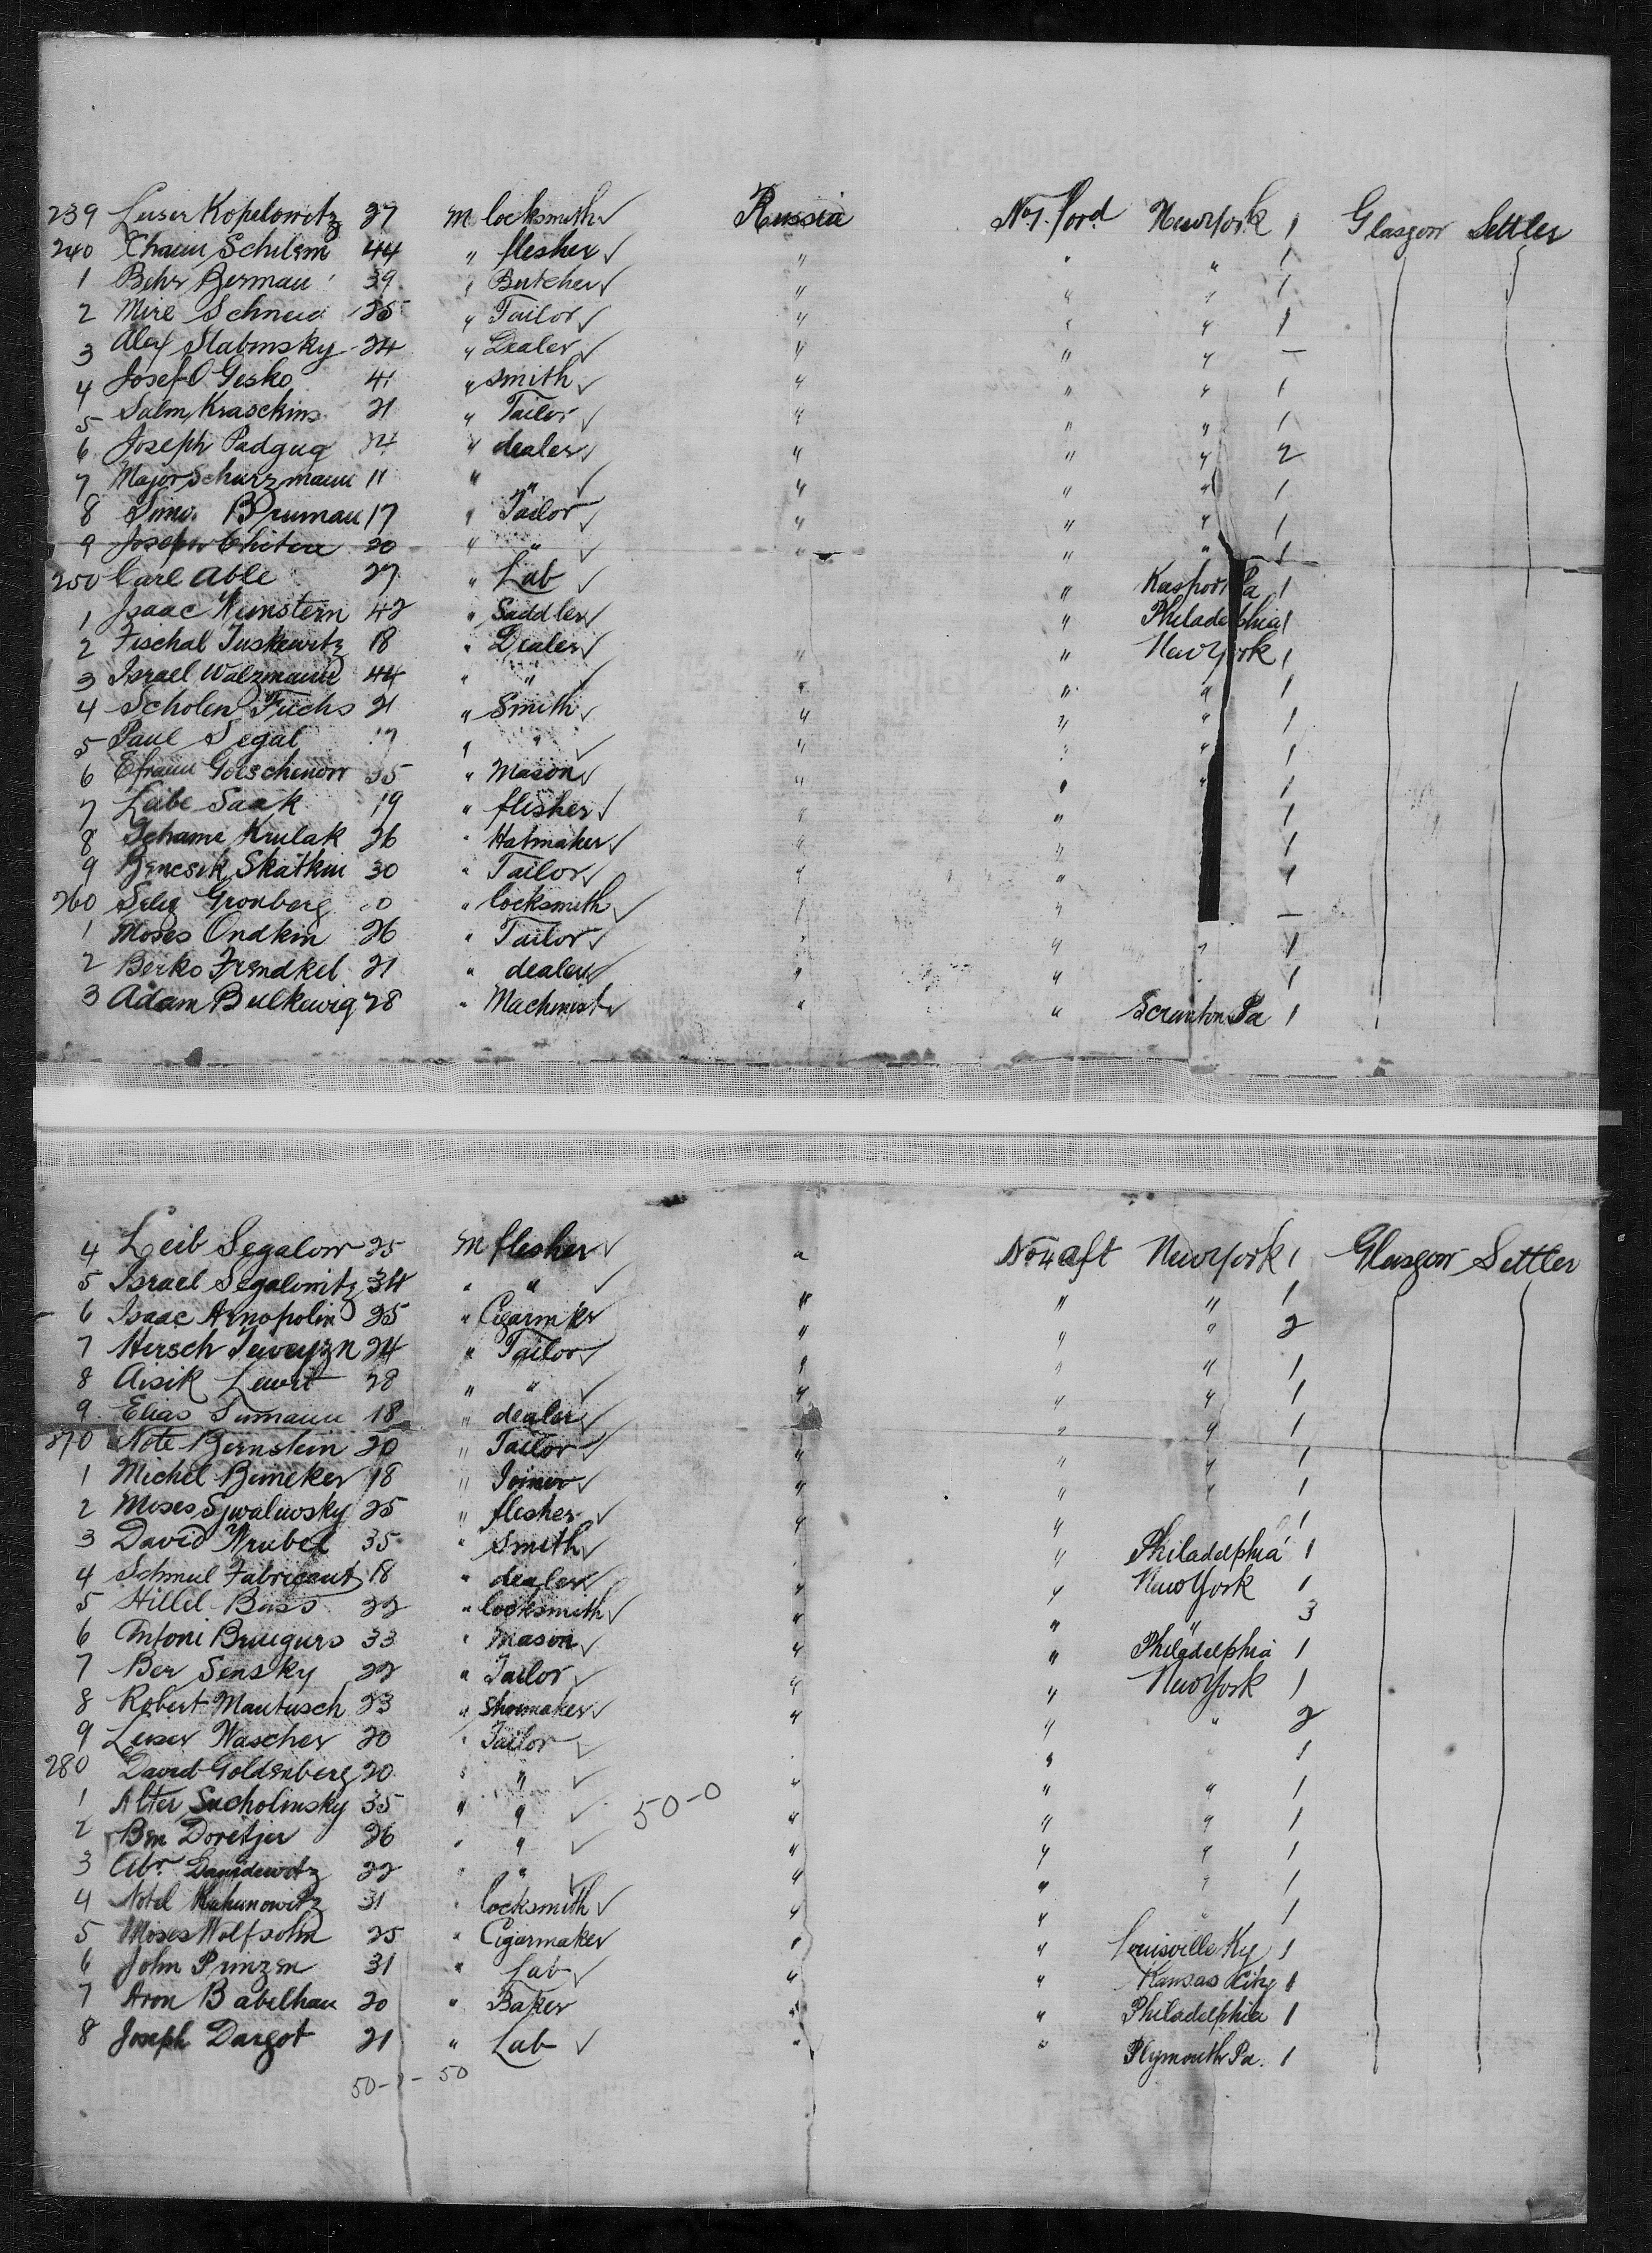 239 Leiser Kopelowitz 27 M locksmith ✓ Russia No 1. ford New York 1 Glasgow Settler
240 Chaim Schulem 44 " flesher ✓ " " " 1
1 Behr Berman 39 " Butcher ✓ " " " 1
2 Mire Schneid 25 " Tailor ✓ " " " 1
3 Alex Slabinsky 24 " Dealer ✓ " " " —
4 Josef O Gesko 41 " smith ✓ " " " 1
5 Salm Kraschins 21 " Tailor ✓ " " " 1
6 Joseph Padgug 24 " dealer ✓ " " " 2
7 Major Schurzmann 11 " " ✓ " " " 1
8 Simo. Bruman 17 " Tailor ✓ " " " 1
9 Joseph 20 " " ✓ " " " 1
250 Carl Able 27 " Lab ✓ " Pa 1
1 Isaac Weinstein 42 " Saddler ✓ " Philadelphia 1
2 Fischal Juskewitz 18 " Dealer ✓ " " New York 1
3 Israel Walzmann 44 " " ✓ " " " 1
4 Scholem Fuchs 21 " Smith ✓ " " " 1
5 Paul Segal " " ✓ " " " 1
6 Efraim Goeschenow 35 " Mason ✓ " " " 1
7 Leibe Saak 19 " flesher ✓ " " 1
8 Schame Krulak 26 " Hatmaker ✓ " " 1
9 Bencsik Skatkin 30 " Tailor ✓ " " 1
260 Selig Gronberg " locksmith ✓ " " —
1 Moses Ondkin 26 " Tailor ✓ " " " 1
2 Berko Frendkel 21 " dealer ✓ " " 1
3 Adam Bulkewig 28 " Machinist ✓ " " Scranton Pa 1
4 Leib Segalow 25 M flesher ✓ " No 4 aft New York 1 Glasgow Settler
5 Israel Segalowitz 34 " " ✓ " " " 1
6 Isaac Arnopolin 25 " Cigarmkr " " " 2
7 Hersch 24 " Tailor ✓ " " " 1
8 Aisik Lewit 28 " " ✓ " " " 1
9 Elias Sumann 18 " dealer ✓ " " 1
270 Note Bernstein 20 " Tailor ✓ " " " 1
1 Michel Bemeker 18 " Joiner ✓ " " " 1
2 Moses Sjwaluwsky 25 " flesher ✓ " " 1
3 David Wrubel 35 " Smith ✓ " " Philadelphia 1
4 Schmul Fabricant 18 " dealer ✓ " " New York 1
5 Hillel Bass 22 " locksmith ✓ " " " 3
6 Antoni Bruegurs 33 " Mason ✓ " " Philadelphia 1
7 Ber Sensky 22 " Tailor ✓ " " New York 1
8 Robert Mantusch 23 " Shoemaker ✓ " " " 2
9 Leiser Wascher 20 " Tailor ✓ " " " 1
280 David Goldenberg 20 " " ✓ " " " 1
1 Alter Sucholinsky 35 " " ✓ 50-0 " " " 1
2 Ben Doretjer 26 " " ✓ " " " 1
3 Abr. Davidowitz 22 " " ✓ " " " 1
4 Notel Kahanowitz 31 " locksmith ✓ " " " 1
5 Moses Wolfsohn 25 " Cigarmaker " " Louisville Ky 1
6 John Prinzen 31 " Lab ✓ " " Kansas City 1
7 Aron Babelhau 20 " Baker " " Philadelphia 1
8 Joseph Dargot 21 " Lab ✓ " " Plymouth Pa. 1
50-1- 50